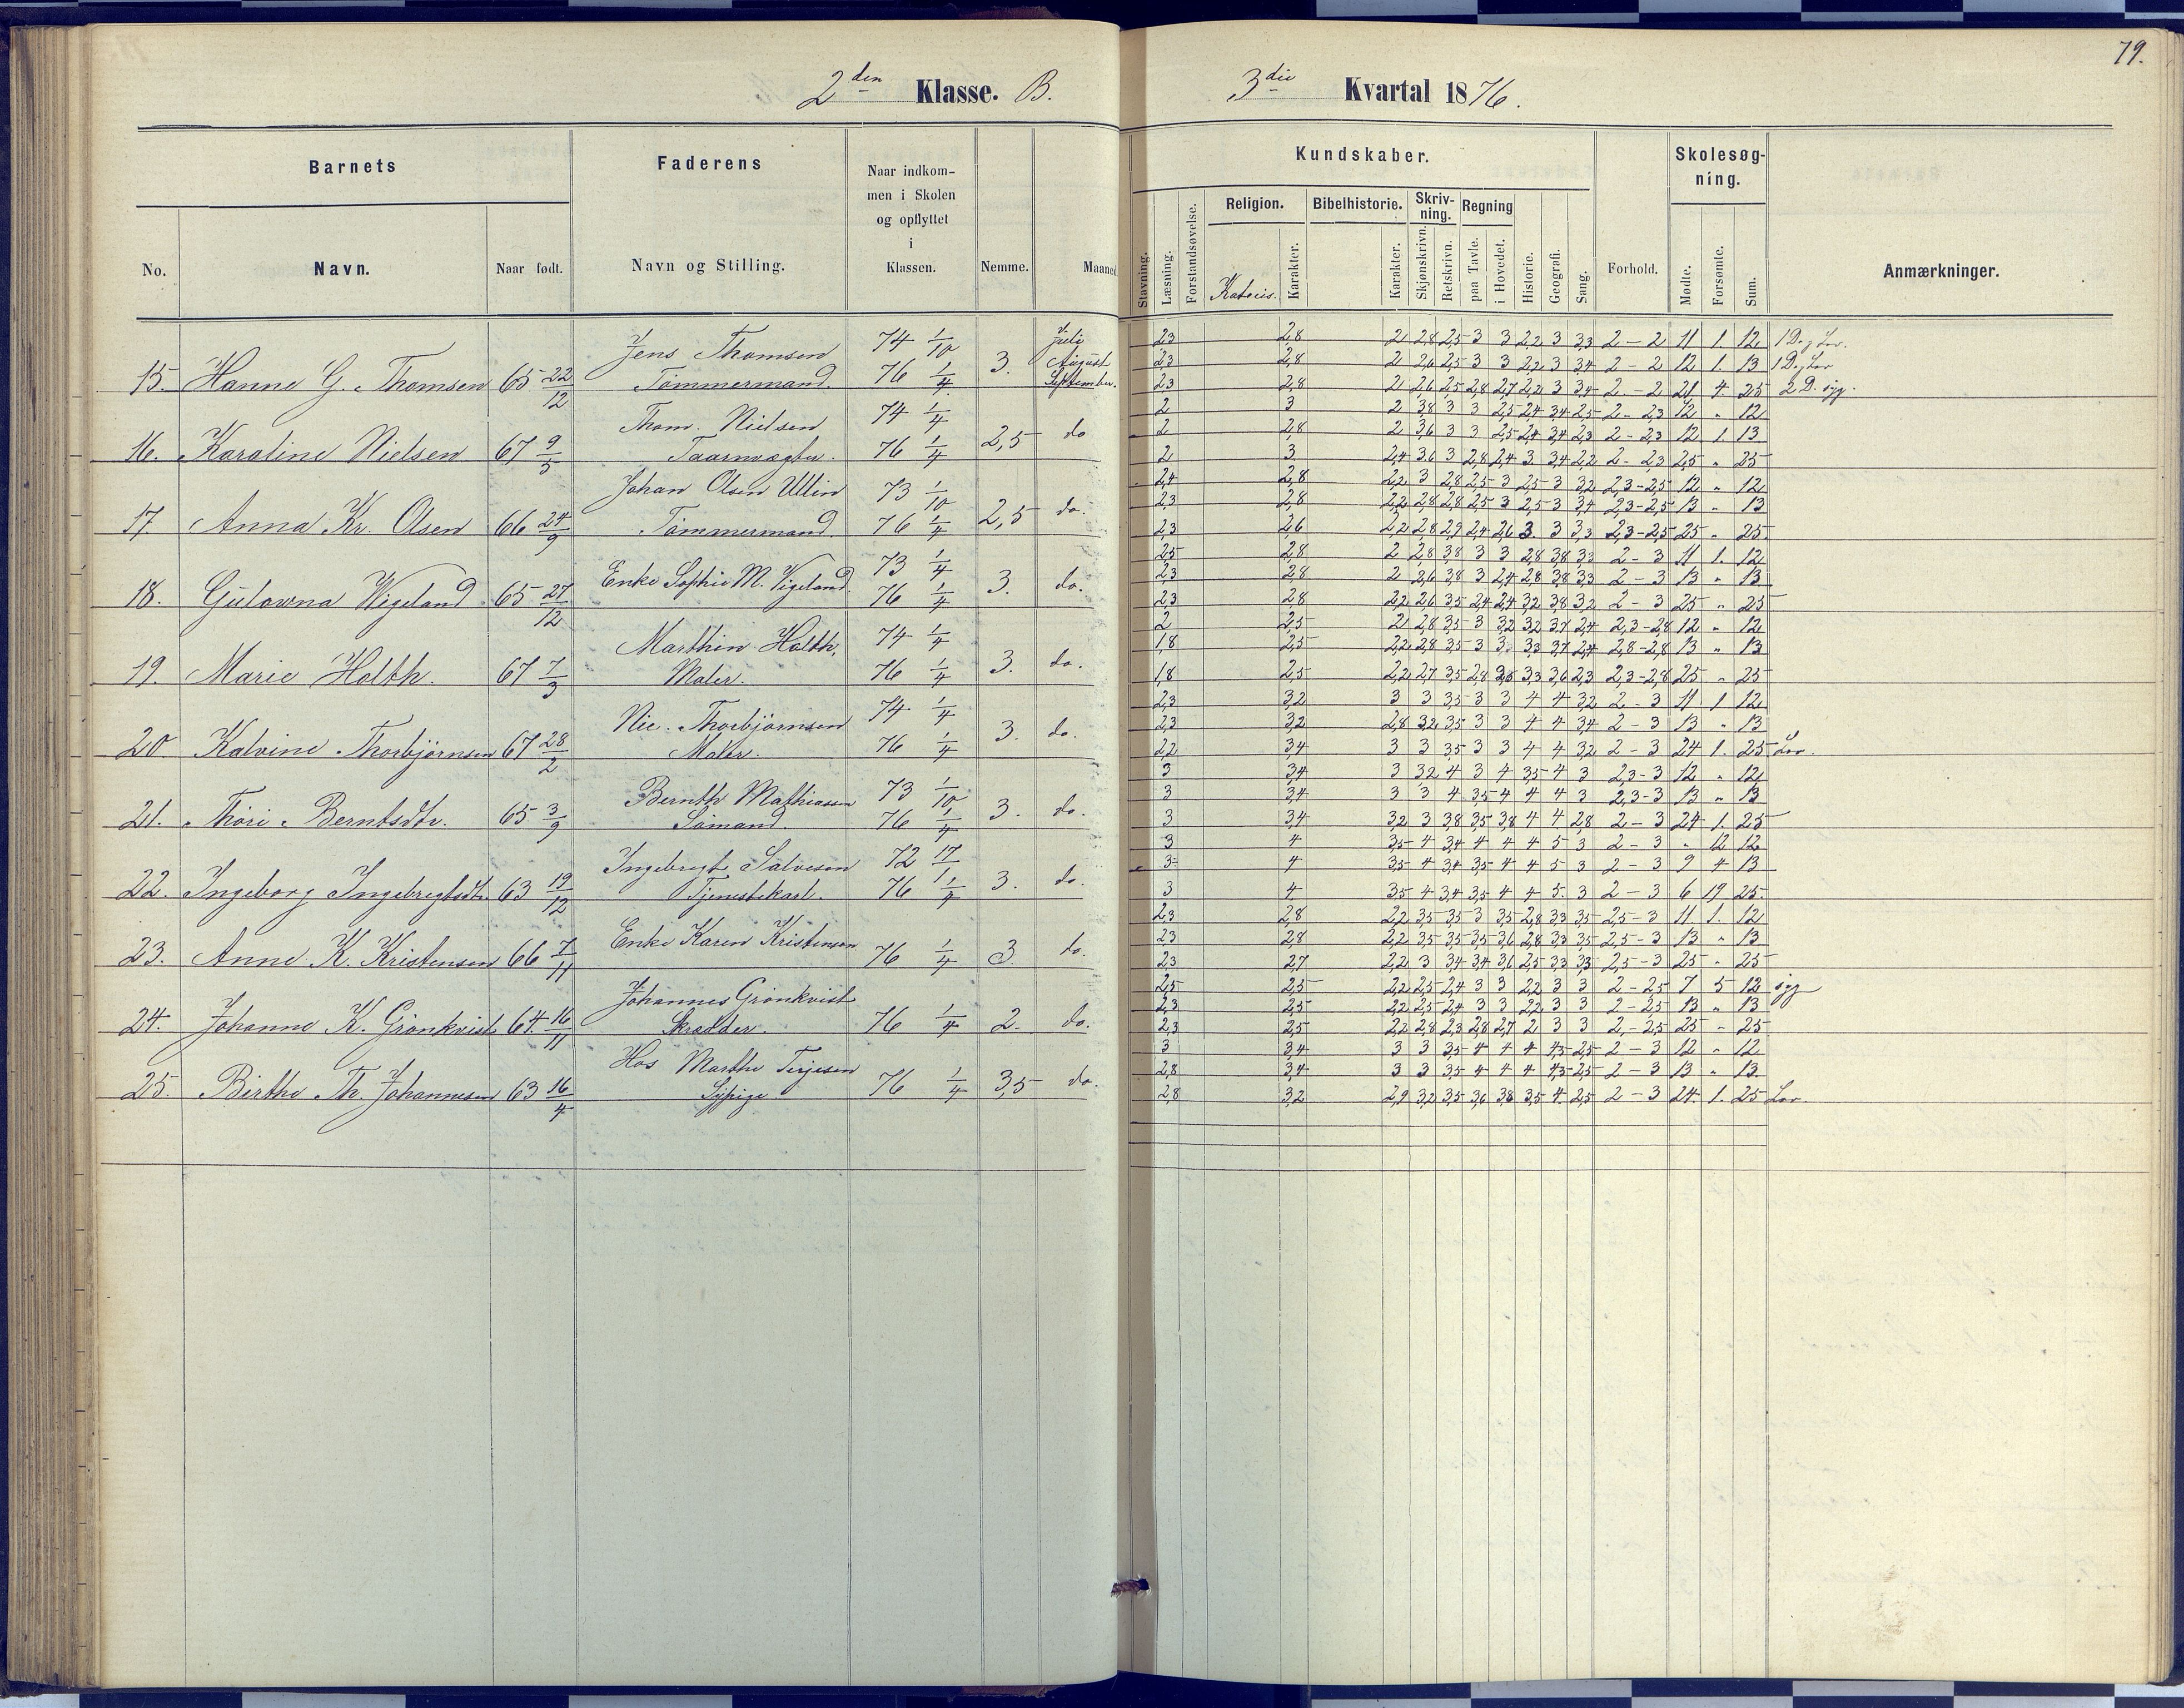 79.
2den Klasse. B. 3die Kvartal 1876.
Barnets Faderens Naar indkommen i Skolen og opflyttet i Klassen. Nemme. Maaned Kundskaber. Forhold. Skolesøgning. Anmærkninger.
No. Navn. Naar født. Navn og Stilling.
Stavning. Læsning. Forstandsøvelse. Religion. Karakter. Bibelhistorie. Karakter. Skrivning. Skjønskrivn. Retskrivn. Regning paa Tavle. i Hovedet. Historie. Geografi. Sang. Mødte. Forsømte. Sum.
Jens Thomsen 74 1/10 Juli 2,3 2,8 2 2,8 2,5 3 3 2,2 3 3,3 2-2 11 1. 12
15. Hanne G. Thomsen 65 22/12 Tømmermand. 76 1/4 3. August 2,3 2,8 2 2,6 2,5 3 3 2,2 3 3,4 2-2 12 1. 13
September. 2,3 2,8 2 2,6 2,5 2,8 2,7 2,2 3 3,4 2-2 21 4. 25 2 D. syg.
Thom. Nielsen 74 1/4 2 3 2 3,8 3 3 2,5 2,4 3,4 2,5 2-2,3 12 " 12
16. Karoline Nielsen 67 9/5 Taarnvægter. 76 1/4 2,5 do 2 2,8 2 3,6 3 3 2,5 2,4 3,4 2,3 2-2,3 12 1. 13
2 3 2,4 3,6 3 2,8 2,4 3. 3,4 2,2 2-2,3 25 " 25
Johan Olsen Ullin 73 1/10 2,4 2,8 2,2 3 2,8 2,5 3 2,5 3 3,2 2,3-2,5 12 " 12
17. Anna Kr. Olsen 66 24/9 Tømmermand. 76 1/4 2,5 do. 2,3 2,8 2,2 2,8 2,8 2,5 3 2,5 3 3,4 2,3-2,5 13 " 13
2,3 2,6 2,2 2,8 2,9 2,4 2,6 3. 3 3,3 2,3-2,5 25 " 25.
Enke Sophie M. Vigeland. 73 1/4 2,5 2,8 2 2,8 3,8 3 3 2,8 3,8 3,3 2-3 11 1. 12
18. Gulowna Wigeland 65 27/12 76 1/4 3. do. 2,3 2,8 2 2,6 3,8 3 2,4 2,8 3,8 3,3 2-3 13 " 13
2,3 2,8 2,2 2,6 3,5 2,4 2,4 3,2 3,8 3,2 2-3 25 " 25
Marthin Holth, 74 1/4 2 2,5 2 2,8 3,5 3 3,2 3,2 3,7 2,4 2,3-2,8 12 " 12
19. Marie Holth. 67 7/3 Maler. 76 1/4 3. do. 1,8 2,5 2,2 2,8 3,5 3 3 3,3 3,7 2,4 2,8-2,8 13 " 13
1,8 2,5 2,2 2,7 3,5 2,8 3,3 3,6 2,3 2,3-2,8 25 " 25
Nic. Thorbjørnsen 74 1/4 2,3 3,2 3 3 3,5 3 3 4 4 3,2 2-3 11 1 12
20 Kalvine Thorbjørnsen 67 28/2 Maler. 76 1/4 3. do. 2,3 3,2 2,8 3,2 3,5 3 3 4 4 3,4 2-3 13 " 13
2,2 3,4 3 3 3,5 3 3 4 4 3,2 2-3 24 1. 25 Lov.
Bernth Mathiassen 73 1/10 3 3,4 3 3,2 4 3 4 3,5 4 3 2,3-3 12 " 12
21. Thori Berntsdtr. 65 3/9 Sømand. 76 1/4 3. do. 3 3,4 3 3 4 3,5 4 4 4 3 2,3-3 13 " 13
3 3,4 3,2 3 3,8 3,5 3,8 4 4 2,8 2-3 24 1. 25
Ingebregt Salvesen 72 3 4 3,5 4 3,4 4 4 4 5 3 2-3 " 12 12
22. Ingeborg Ingebregtsdtr. 63 19/12 Tjenestekarl. 76 1/4 3. do. 3 4 3,5 4 3,4 3,5 4 4 5 3 2-3 9 4 13
3 4. 3,5 4 3,4 3,5 4 4 5. 3 2-3 6 19 25.
Enke Karen Kristensen 2,3 2,8 2,2 3,5 3,5 3 3,5 2,8 3,3 3,5 2,5-3 11 1. 12
23. Anne K. Kristensen 66 7/11 76 1/4 3. do. 2,3 2,8 2,2 3,5 3,5 3,5 3,6 2,8 3,3 3,5 2,5-3 13 " 13
2,3 2,7 2,2 3 3,4 3,4 3,6 2,5 3,3 3,3 2,5-3 25 " 25
Johannes Grønkvist 2,5 2,5 2,2 2,5 2,4 3 3 2,2 3 3 2-2,5 7 5 12 syg
24. Johanne K. Grønkvist 64 16/11 Skrædder. 76 1/4 2. do. 2,3 2,5 2,2 2,5 2,4 3 3 2,2 3 3 2-2,5 13 " 13
2,3 2,5 2,2 2,8 2,3 2,8 2,7 2 3 3 2-2,5 25 " 25
Hos Marthe Terjesen 3 3,4 3 3 3,5 4 4 4 4,5 2,5 2-3 12 " 12
25. Birthe Th. Johannesen 63 16/4 Sypige 76 1/4 3,5 do. 2,8 3,4 3 3 3,5 4 4 4 4,5 2,5 2-3 13 " 13
2,8 3,2 2,9 3,2 3,5 3,6 3,8 3,5 4. 2,5 2-3 24. 1. 25 Lov.